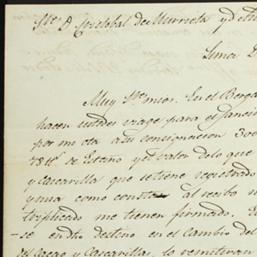 Sres. D. Cristobal de Murrieta y
Lima
Muy Sres. mios. En el Berg
hacen ustedes viage para el
por mi cta. a su consignacion 300
de Estaño y el valor de lo que
y Cascarilla que se tiene registrado
y una como consta al recibo
triplicado me tienen firmado. E
-se en dho. destino en el Cambio del
del Cacao y Cascarilla, lo remitiran